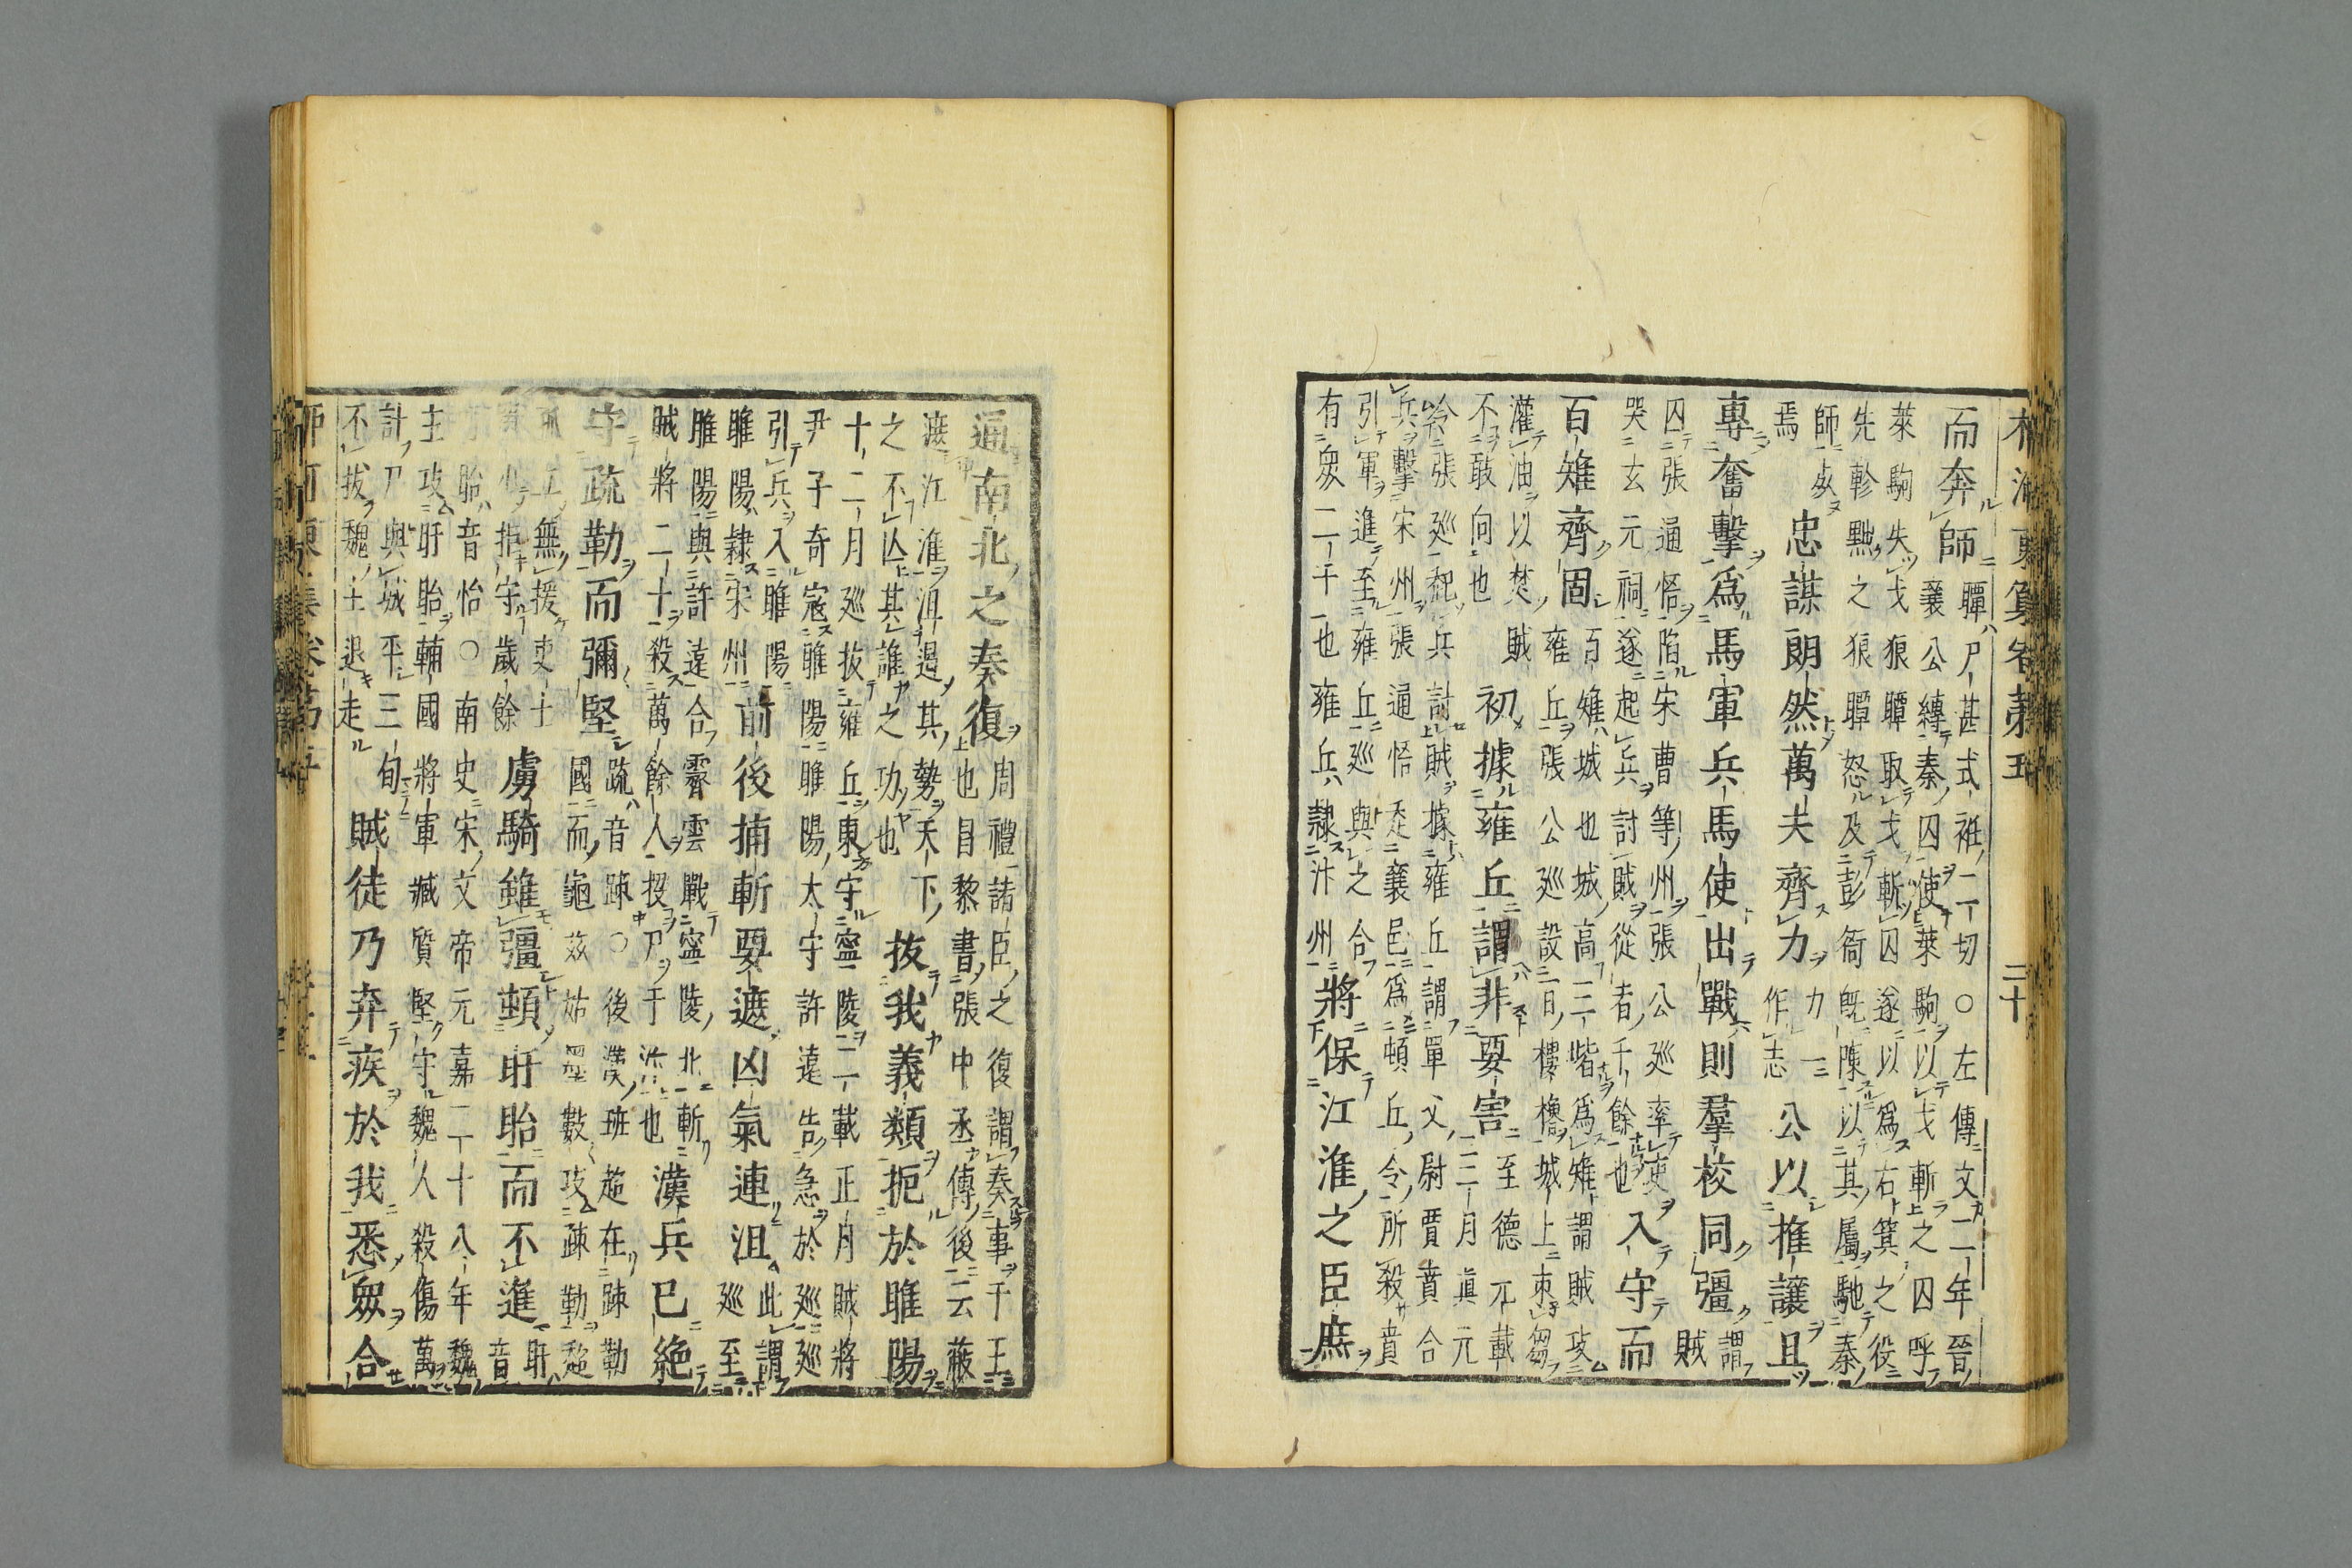 柳河東集卷第五 二十
而奔師
瞫尸甚式袵二切○左傳文二年晉
襄公縛秦囚使萊駒以戈斬之囚呼
萊駒失戈狼瞫取戈斬囚遂以爲右箕之役
先軫黜之狼瞫怒及彭衙旣陳以其屬馳秦
師死
焉
忠謀朗然萬夫齊力
力一
作志
公以推讓且
專奮擊爲馬軍兵馬使出戰則羣校同彊
謂
賊
囚張通悟陷宋曹等州張公巡率吏
哭玄元祠遂起兵討賊從者千餘也
入守而
百雉齊固
百雉城也城高三堵爲雉謂賊攻
雍丘張公巡設二日樓櫓城上束芻
灌油以焚賊
不敢向也
初據雍丘謂非要害
至德元載
二月眞元
令張巡起兵討賊據雍丘謂單父尉賈賁合
兵擊宋州張通悟走襄邑爲頓丘令所殺賁
引軍進至雍丘巡與之合
有衆二千也雍兵隸汴州
將保江淮之臣庶
通南北之奏復
周禮諸臣之復謂奏事于王
上也目黎書張中丞傳後云蔽
遮江淮沮遏其勢天下
之不亾其誰之功也
拔我義類扼於睢陽
十二月巡拔雍丘東守寧陵二載正月賊將
尹子奇寇睢陽睢陽太守許遠告急於巡巡
引兵入睢陽
睢陽隷宋州
前後捕斬要遮凶氣連沮
此謂
巡至
睢陽與許遠合霽雲戰寧陵北斬
賊將二十殺萬餘人投尸于汴也
漢兵已絶
守疏勒而彌堅
疏音踈○後漢班超在踈勒
國而龜茲姑墨數攻踈勒超
孤立無援吏士
單少拒守歲餘
虜騎雖彊頓盱眙而不進
盱
音
眙音怡○南史宋文帝元嘉二十八年魏
主攻盱眙輔國將軍臧質堅守魏人殺傷萬
計尸與城平三旬
不拔魏主退走
賊徒乃弃疾於我悉衆合